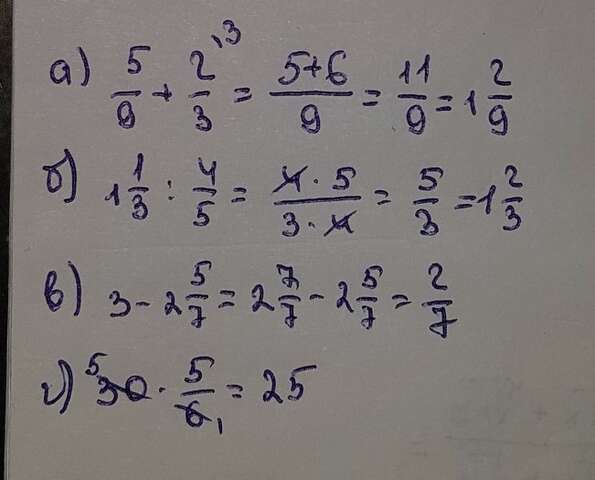 а) 5/9 + 2/3 ,3 = (5+6)/9 = 11/9 = 1 2/9
б) 1 1/3 : 4/5 = (4 · 5)/(3 · 4) = 5/3 = 1 2/3
в) 3 - 2 5/7 = 2 7/7 - 2 5/7 = 2/7
г) 5 30 · 5/6 1 = 25